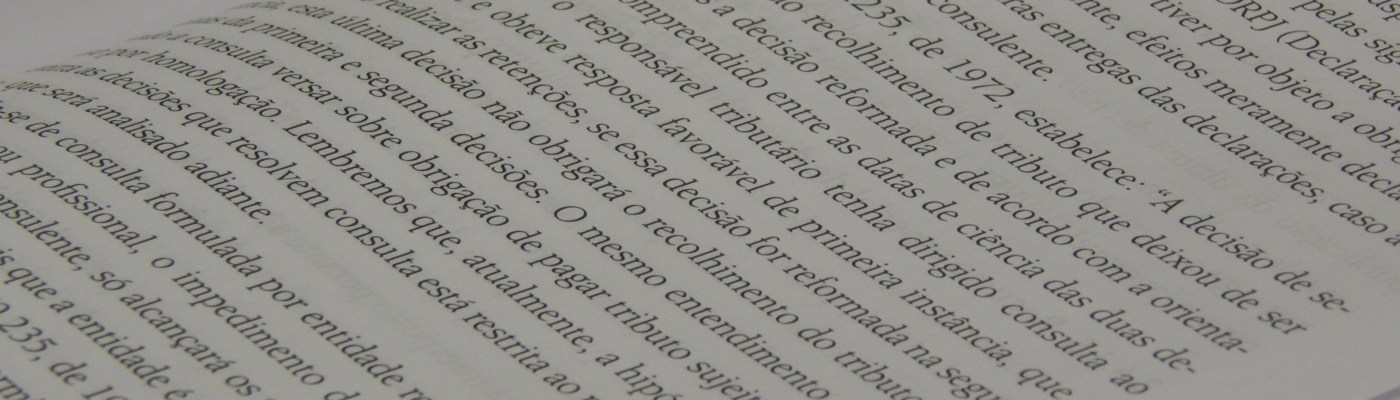 pelas
DRPJ (Declaraçã
tiver por objeto a obri
nte, efeitos meramente decl
ras entregas das declarações, caso
consulente.
235, de 1972, estabelece: “A decisão de se-
o recolhimento de tributo que deixou de ser
a decisão reformada e de acordo com a orienta-
ompreendido entre as datas de ciência das duas de-
o responsável tributário tenha dirigido consulta ao
e obteve resposta favorável de primeira instância, que
realizar as retenções, se essa decisão for reformada na segu
esta última decisão não obrigará o recolhimento do tributo
da primeira e segunda decisões. O mesmo entendimento
a consulta versar sobre obrigação de pagar tributo sujeit
por homologação. Lembremos que, atualmente, a hipó
as decisões que resolvem consulta está restrita ao
que será analisado adiante.
-se de consulta formulada por entidade re
ou profissional, o impedimento d
nsulente, só alcançará os
is que a entidade é
235, de